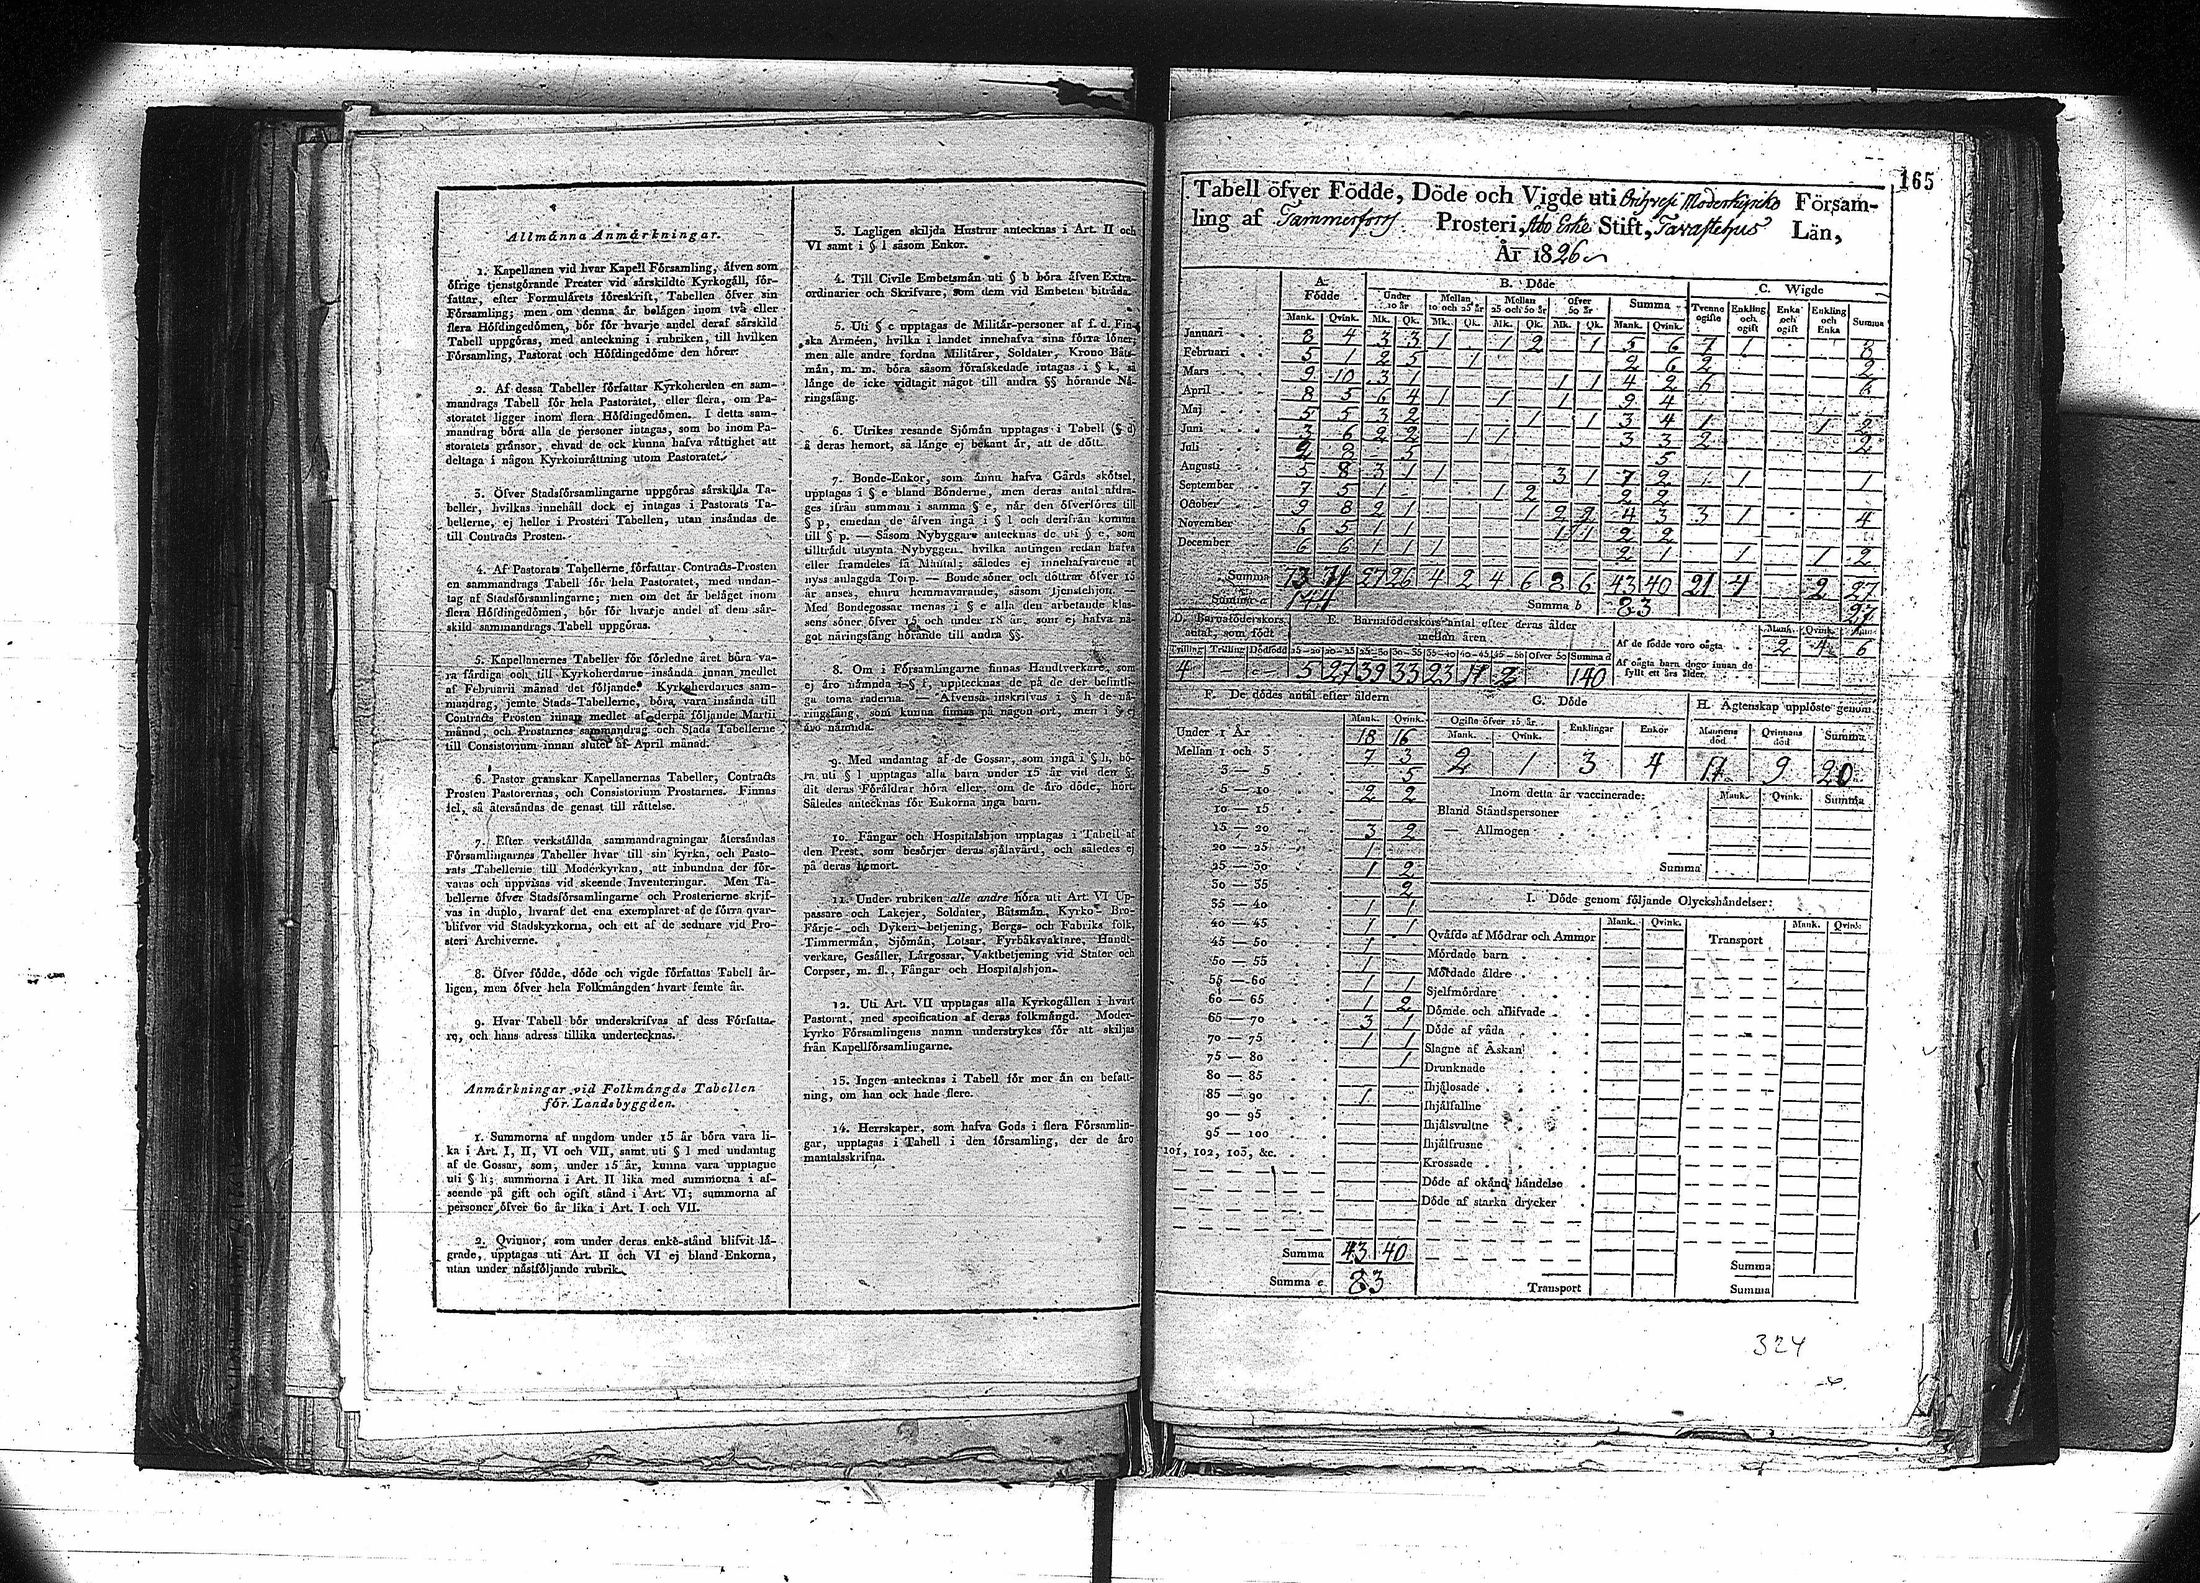 Allmänna Anmärkningar.
1. Kapellanen vid hvar Kapell Församling, äfven som
öfrige tjenstgörande Prester vid särskildte Kyrkogäll, för-
fattar, efter Formulärets föreskrift, Tabellen öfver sin
Församling; men om denna är belägen inom två eller
flera Höfdingedömen, bör för hvarje andel deraf särskild
Tabell uppgöras, med anteckning i rubriken, till hvilken
Församling, Pastorat och Höfdingedöme den hörer.
2. Af dessa Tabeller författar Kyrkoherden en sam-
mandrags Tabell för hela Pastoratet, eller flera, om Pa-
storatet ligger inom flera Höfdingedömen. I detta sam-
mandrag böra alla de personer intagas, som bo inom Pa-
storatets gränsor, ehvad de ock kunna hafva rättighet att
deltaga i någon Kyrkoinrättning utom Pastoratet.
3. Öfver Stadsförsamlingarne uppgöras särskilda Ta-
beller, hvilkas innehåll dock ej intages i Pastorats Ta-
bellerne, ej heller i Prosteri Tabellen, utan insändas de
till Contracts Prosten.
4. Af Pastorats Tabellerne författar Contracts-Prosten
en sammandrags Tabell för hela Pastoratet, med undan-
tag af Stadsförsamlingarne; men om det är beläget inom
flera Höfdingedömen, bör för hvarje andel af dem sär-
skild sammandrags Tabell uppgöras.
5. Kapellanernes Tabeller för förledne året böra va-
ra färdiga och till Kyrkoherdarne insända innan medlet
af Februarii månad det följande. Kyrkoherdarnes sam-
mandrag, jemte Stads-Tabellerne, böra vara insända till
Contracts Prosten innan medlet af derpå följande Martii
månad, och Prostarnes sammandrag och Stads Tabellerne
till Consistorium innan slutet af April månad.
6. Pastor granskar Kapellanernas Tabeller, Contracts
Prosten Pastorernas, och Consistorium Prostarnes. Finnas
fel, så återsändas de genast till rättelse.
7. Efter verkställda sammandragningar återsändas
Församlingarnes Tabeller hvar till sin kyrka, och Pasto-
rats Tabellerne till Moderkyrkan, att inbundna der för-
varas och uppvisas vid skeende Inventeringar. Men Ta-
bellerne öfver Stadsförsamlingarne och Prosterierne skrif-
vas in duplo, hvaraf det ena exemplaret af de förra qvar-
blifver vid Stadskyrkorna, och ett af de sednare vid Pro-
steri Archiverne.
8. Öfver födde, döde och vigde författas Tabell år-
ligen, men öfver hela Folkmängden hvart femte år.
9. Hvar Tabell bör underskrifvas af dess Författa-
re, och hans adress tillika undertecknas.
Anmärkningar vid Folkmängds Tabellen
för Landsbyggden.
1. Summorna af ungdom under 15 år böra vara li-
ka i Art. I, II, VI och VII, samt uti § l med undantag
af de Gossar, som, under 15 år, kunna vara upptagne
uti § h; summorna i Art. II lika med summorna i af-
seende på gift och ogift stånd i Art. VI; summorna af
personer öfver 60 år lika i Art. I och VII.
2. Qvinnor, som under deras enke-stånd blifvit lä-
grade, upptagas uti Art. II och VI ej bland Enkorna,
utan under nästföljande rubrik.
3. Lagligen skiljda Hustrur antecknas i Art. II och
VI samt i § l såsom Enkor.
4. Till Civile Embetsmän uti § b böra äfven Extra-
ordinarier och Skrifvare, som dem vid Embeten biträda.
5. Uti § c upptagas de Militär-personer af f. d. Fin-
ska Arméen, hvilka i landet innehafva sina förra löner;
men alle andre fordna Militärer, Soldater, Krono Båts-
män, m. m. böra såsom förafskedade intagas i § k, så
länge de icke vidtagit något till andra §§ hörande Nä-
ringsfång.
6. Utrikes resande Sjömän upptagas i Tabell (§ d)
å deras hemort, så länge ej bekant är, att de dött.
7. Bonde-Enkor, som ännu hafva Gårds skötsel,
upptagas i § e bland Bönderne, men deras antal afdra-
ges ifrån summan i samma § e, når den öfverföres till
§ p, emedan de äfven ingå i § l och derifrån komma
till § p. — Såsom Nybyggare antecknas de uti § e, som
tillträdt utsynta Nybyggen, hvilka antingen redan hafva
eller framdeles få Mantal; således ej innehafvarene af
nyss anlaggda Torp. — Bonde söner och döttrar öfver 15
år anses, ehuru hemmavarande, såsom Tjenstehjon.
Med Bondegossar menas i § e alla den arbetande klas-
sens söner öfver 15 och under 18 år, som ej hafva nå-
got näringsfång hörande till andra §§.
8. Om i Församlingarne finnas Handtverkare, som
ej äro nämnda i § f, upptecknas de på de der befintli-
ga toma raderna. Äfvenså inskrifvas i § h de nä-
ringsfång, som kunna finnas på någon ort, men i § ej
äro nämnda.
9. Med undantag af de Gossar, som ingå i § h, bö-
ra uti § l upptagas alla barn under 15 år vid den §,
dit deras Föräldrar höra eller, om de äro döde, hört.
Således antecknas för Enkorna inga barn.
10. Fångar och Hospitalshjon upptagas i Tabell af
den Prest, som besörjer deras själavård, och således ej
på deras hemort.
11. Under rubriken alle andre höra uti Art. VI Up-
passare och Lakejer, Soldater, Båtsmän, Kyrko- Bro-
Färje- och Dykeri-betjening, Bergs- och Fabriks folk,
Timmermän, Sjömän, Lotsar, Fyrbåksvaktare, Handt-
verkare, Gesäller, Lärgossar, Vaktbetjening vid Stater och
Corpser, m. fl., Fångar och Hospitalshjon.
12. Uti Art. VII upptagas alla Kyrkogällen i hvart
Pastorat, med specification af deras folkmängd. Moder-
kyrko Församlingens namn understrykes för att skiljas
från Kapellförsamlingarne.
13. Ingen antecknas i Tabell för mer än en befatt-
ning, om han ock hade flere.
14. Herrskaper, som hafva Gods i flera Församlin-
gar, upptagas i Tabell i den församling, der de äro
mantalsskrifna.
165
Tabell öfver Födde, Döde och Vigde uti Orihvesi Moderkyrko Försam-
ling af Tammerfors Prosteri, Åbo Erke Stift, Tavastehus Län,
År 1826
A. Födde B. Döde C. Wigde
Under 10 år Mellan 10 och 25 år Mellan 25 och 50 år Öfver 50 år Summa Tvenne ogifte Enkling och ogift Enka och ogift Enkling och Enka Summa
Mank. Qvink. Mk. Qk. Mk. Qk. Mk. Qk. Mk. Qk. Mank. Qvink.
Januari 8 4 3 3 1 1 2 1 5 6 7 1 8
Februari 5 1 2 5 1 2 6 2 2
Mars 9 10 3 1 1 1 4 2 6 6
April 8 5 6 4 1 1 1 9 4
Maj 5 5 3 2 1 1 3 4 1 1 2
Juni 3 6 2 2 1 1 3 3 2 2
Juli 2 8 5 5
Augusti 5 8 3 1 1 3 1 7 2 1 1
September 7 5 1 1 2 2 2
October 9 8 2 1 1 2 2 4 3 3 1 4
November 6 5 1 1 1 1 2 2
December 6 6 1 1 1 2 1 1 1 2
Summa 73 71 27 26 4 2 4 6 8 6 43 40 21 4 2 27
Summa a 144 Summa b 83 27
D. Barnaföderskors antal, som födt
E. Barnaföderskors antal efter deras ålder mellan åren
Tvilling Trilling Dödfödd 15—20 20—25 25—30 30—35 35—40 40—45 45—50 Öfver 50 Summa d
4 — — 5 27 39 33 23 11 2 140
Mank. Qvink. Summa
Af de födde voro oägta 2 4 6
Af oägta barn dogo innan de
fyllt ett års ålder.
F. De dödes antal efter åldern
Mank. Qvink.
Under 1 År 18 16
Mellan 1 och 3 7 3
3 — 5 5
5 — 10 2 2
10 — 15
15 — 20 3 2
20 — 25 1
25 — 30 1 2
30 — 35 2
35 — 40 1 1
40 — 45 1 1
45 — 50 1
50 — 55 1
55 — 60 1 1
60 — 65 1 2
65 — 70 3 1
70 — 75 1 1
75 — 80 1
80 — 85
85 — 90 1
90 — 95
95 — 100
101, 102, 103, &c.
Summa 43 40
Summa e 83
G. Döde
Ogifte öfver 15 år. Enklingar Enkor
Mank. Qvink.
2 1 3 4
H. Ägtenskap upplöste genom
Mannens död Qvinnans död Summa
11 9 20
Inom detta år vaccinerade: Mank. Qvink. Summa
Bland Ståndspersoner
— Allmogen
Summa
I. Döde genom följande Olyckshändelser:
Mank. Qvink. Mank. Qvink.
Qväfde af Mödrar och Ammor Transport
Mördade barn
Mördade äldre
Sjelfmördare
Dömde och aflifvade
Döde af våda
Slagne af Åskan
Drunknade
Ihjälosade
Ihjälfallne
Ihjälsvultne
Ihjälfrusne
Krossade
Döde af okänd händelse
Döde af starka drycker
Summa
Transport Summa
324